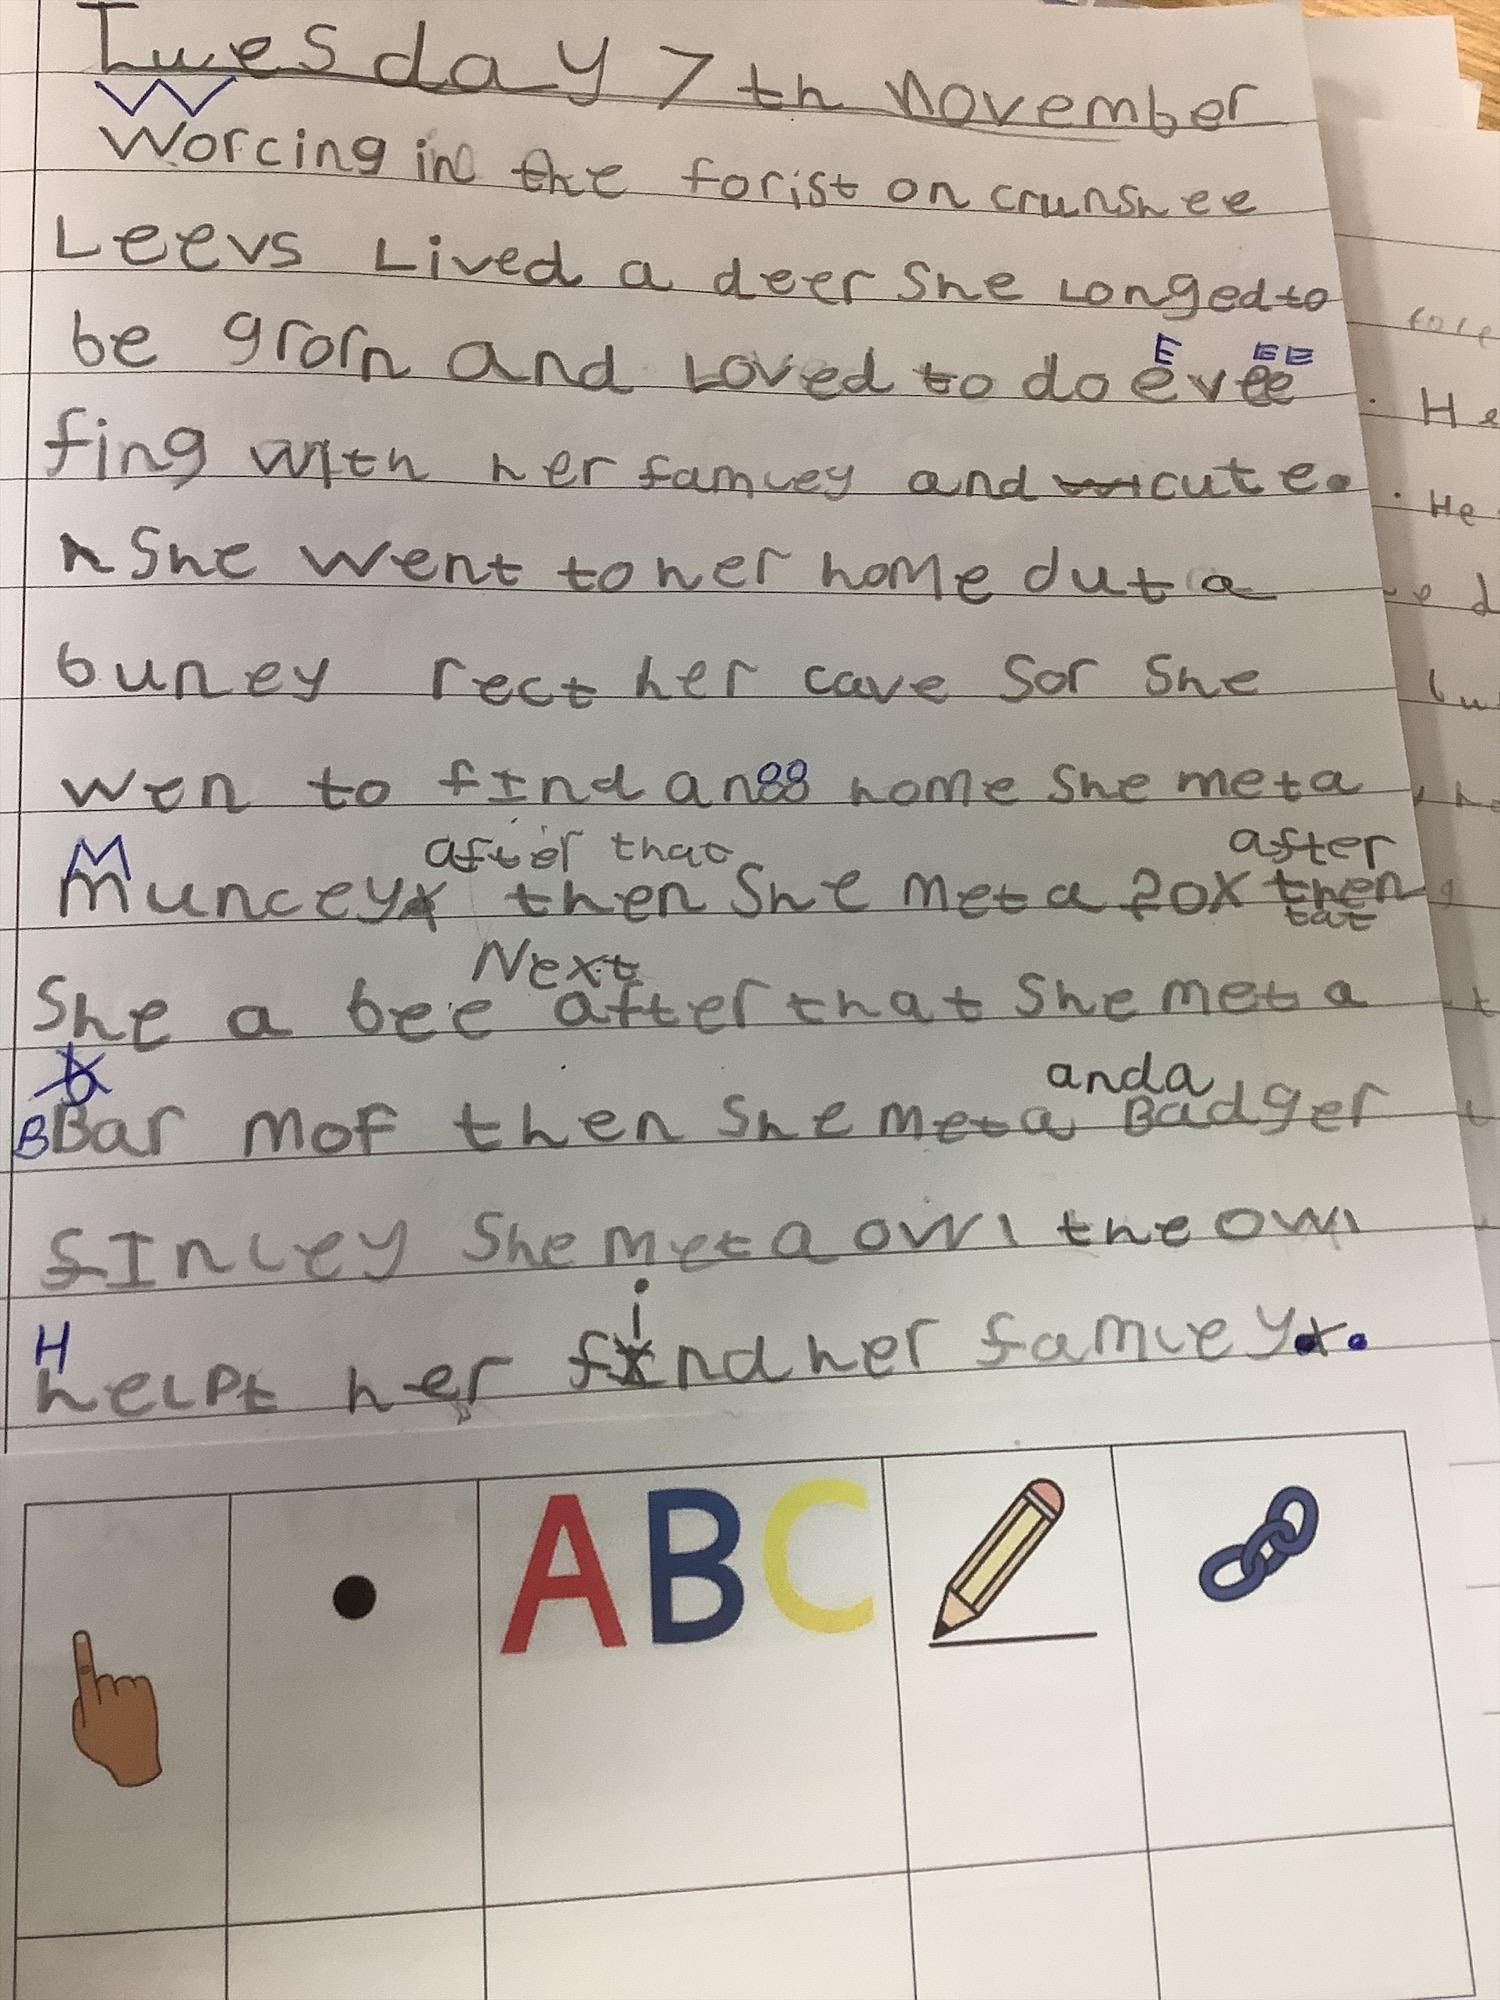 Tuesday 7th November
W
Worcing in the forist on crunshee
Leevs Lived a deer She Longed to
be grorn and Loved to do evee
E EE
fing with her famley and cute.
She went to her home dut a
buney rect her cave Sor She
wen to find an home She met a
M
Muncey then She met a fox then
after that
after
tat
She a bee after that She met a
Next
b
B Bar mof then She met a Badger
and a
finley She met a owl the owl
H
helpt her find her famley.
i
ABC
He
He